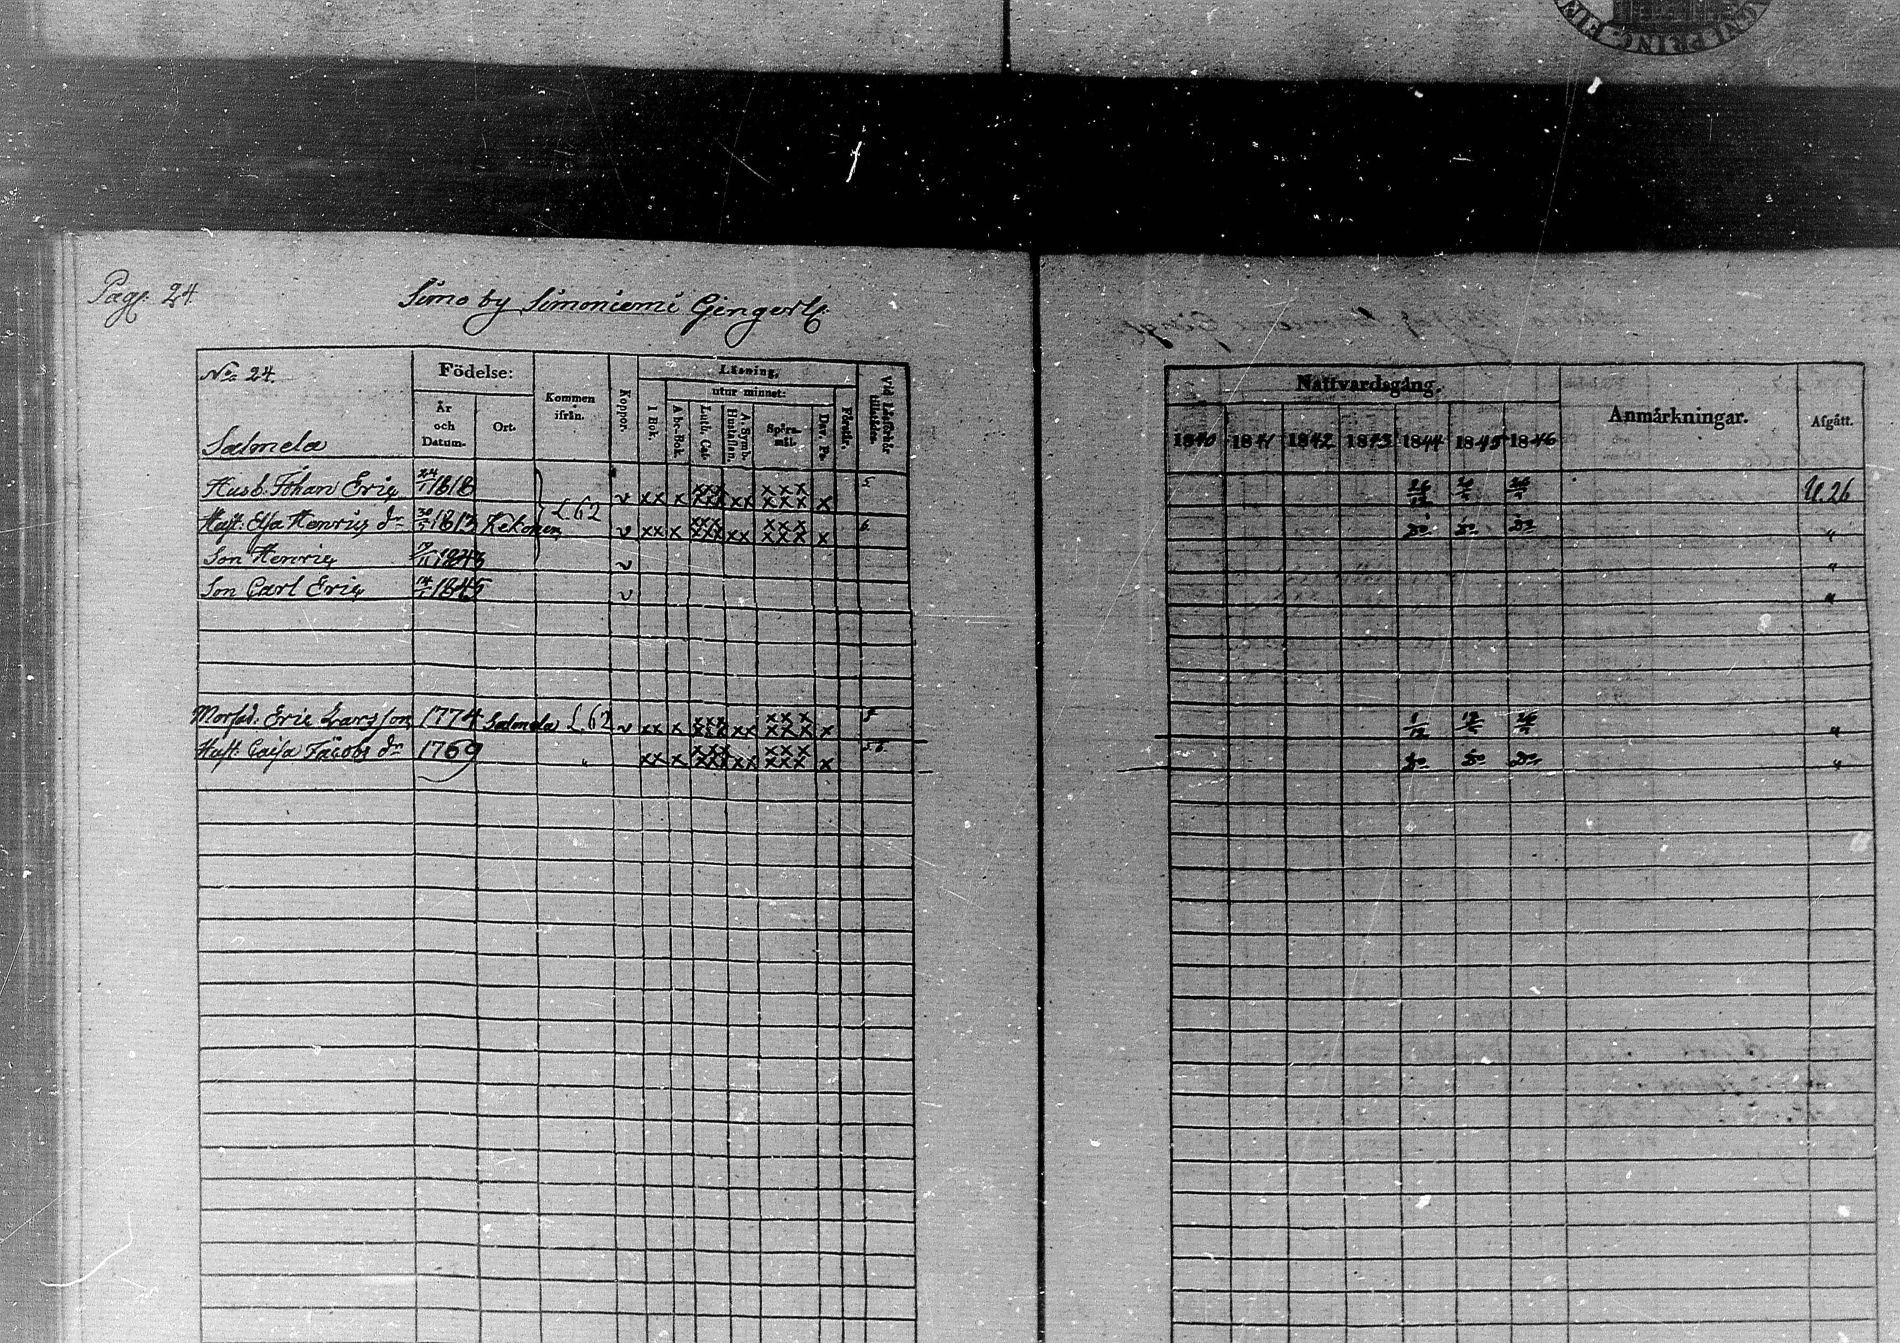 Pag. 24.
Simo by Simoniemi
No 24.
Salmela
Födelse:
År och Datum.
Ort.
Kommen ifrån.
Koppor.
Läsning,
I Bok.
utur minnet:
Abc-Bok
Luth. Cat.
A. Symb. Hustaflan.
Spörsmål.
Dav. Ps.
Förstår.
Vid Läseförhör tillstädes.
Nattvardsgång.
1840 1841 1842 1843 1844 1845 1846
Anmärkningar.
Afgått.
Husb. Johan Eric 24/1 1818 L.62 v xx x xxx xxx xx xxx xxx x 5 U.26
Hust. Elsa Henrics dr 1813 Kekonen v xx x xxx xxx xx xxx xxx x 6 Do Do Do "
Son Henric v "
Son Carl Eric 1845 v "
Morfad. Eric Larsson 1774 Salmela L.62 v xx x xxx xxx xx xxx xxx x 1/12 "
Hust. Caisa Jacobs dr 1769 " xx x xxx xxx xx xxx xxx x 5.6 Do Do Do "